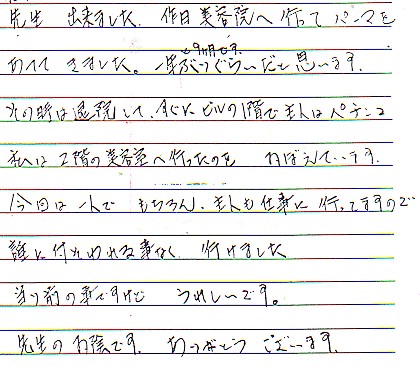 先生 出来ました. 作日美容院へ行って パーマを
と9ヶ月です.
あてて きました。一年ぶりぐらいだと思います.
その時は退院して、すぐに ビルの1階で主人はパチンコ
私は2階の美容室へ行ったのを おぼえています.
今回は一人で もちろん、主人も仕事に行ってますので
誰に付そわれる事なく 行けました
当り前の事ですけど うれしいです。
先生のお陰です. ありがとう ございます.